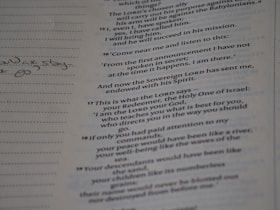 which of
thing
The LORD's chosen ally
will carry out his purpose against
his arm will be against
15 I, even I, have spoken;
yes, I have called
I will bring him,
and he will succeed in his mission.
16 'Come near me and listen to this:
'From the first announcement I have not
spoken in secret;
at the time it happens, I am there.'
And now the Sovereign LORD has sent me,
endowed with his Spirit.
17 This is what the LORD says –
your Redeemer, the Holy One of Israel:
'I am the LORD your God,
who teaches you what is best for you,
who directs you in the way you should
go.
18 If only you had paid attention to my
commands,
your peace would have been like a river,
your well-being like the waves of the
sea.
19 Your descendants would have been like
the sand,
your children like its numberless
grains;
their name would never be blotted out
nor destroyed from before me.'
stay
go